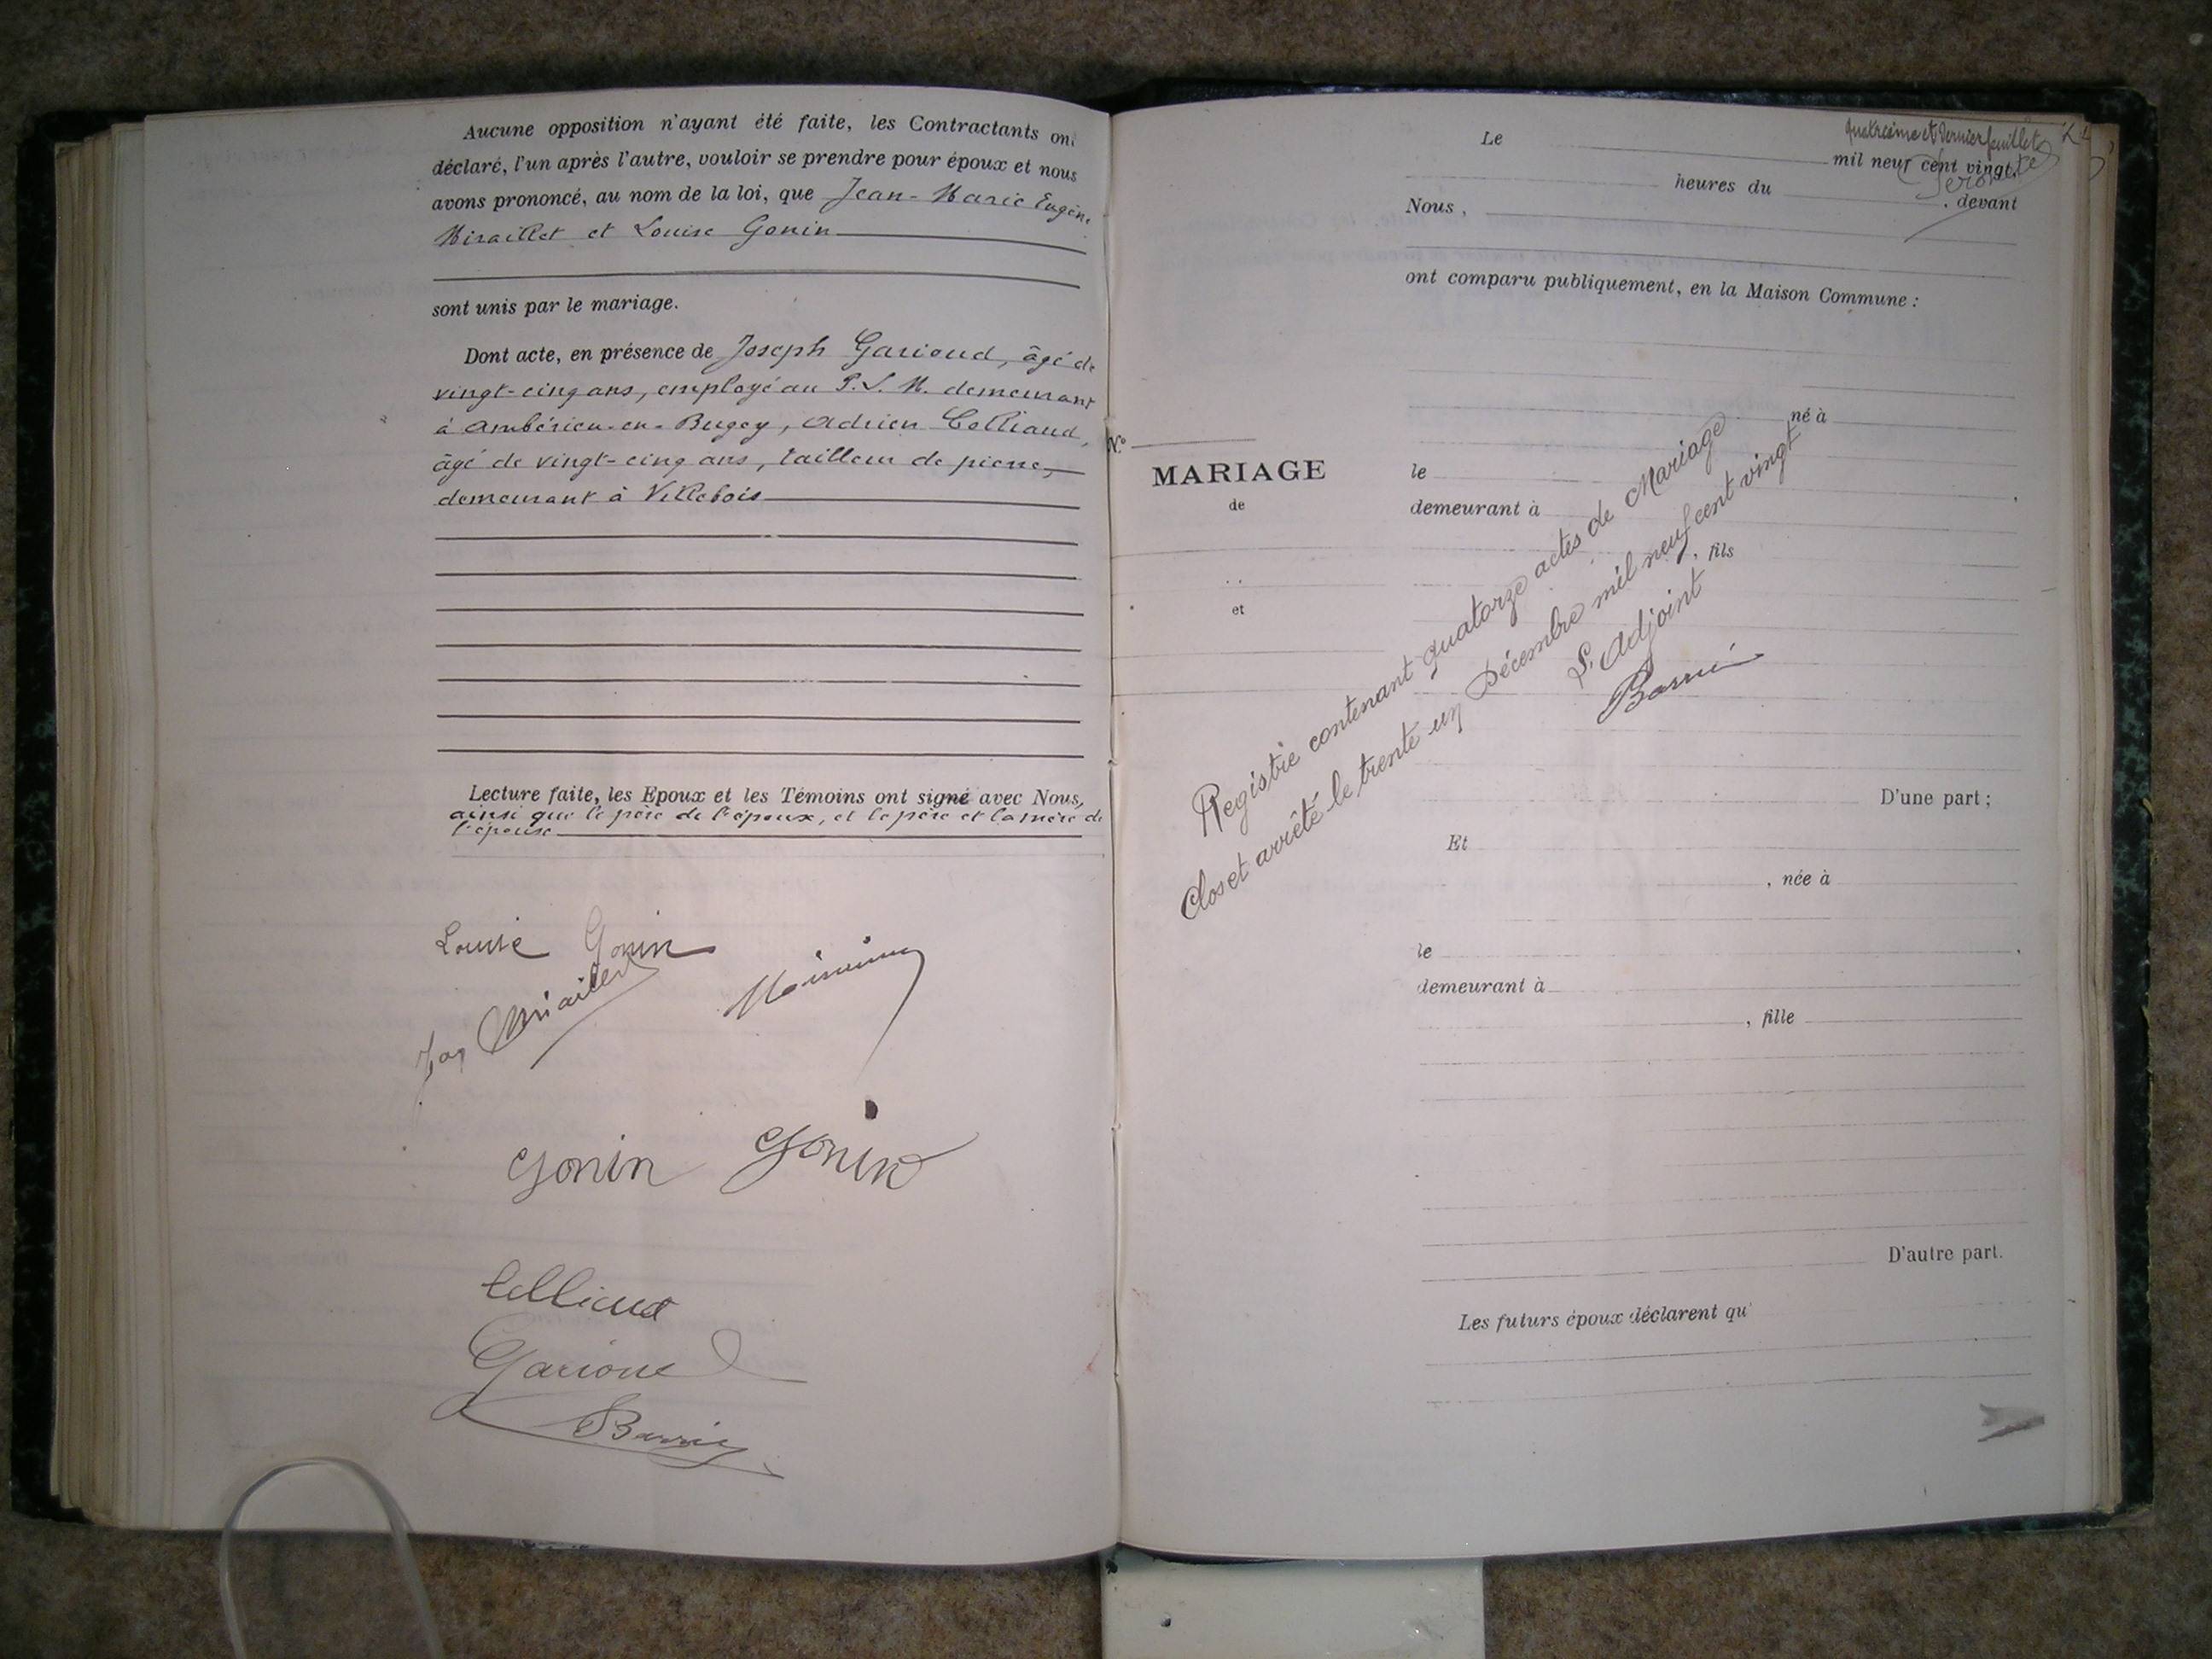 Aucune opposition n'ayant été faite, les Contractants on
déclaré, l'un après l'autre, vouloir se prendre pour époux et nous
avons prononcé, au nom de la loi, que Jean-Marie Eugène
Miraillet et Louise Gonin
sont unis par le mariage.
Dont acte, en présence de Joseph Garioud, âgé de
vingt-cinq ans, employé au P.L.M. demeurant
à Ambérieu-en-Bugey, Adrien Celliaud,
âgé de vingt-cinq ans, tailleur de pierre,
demeurant à Villebois
Lecture faite, les Epoux et les Témoins ont signé avec Nous,
ainsi que le père de l'époux, et le père et la mère de
l'épouse
Louise Gonin
Gonin Gonin
Celliaud
Garioud
quatrième et dernier feuillet
Le
mil neuf cent vingt
heures du
, devant
Nous,
ont comparu publiquement, en la Maison Commune :
né à
N°
MARIAGE
de
et
le
demeurant à
, fils
Registre contenant quatorze actes de Mariage
Clos et arrêté le trente un Décembre mil neuf cent vingt
L'Adjoint
D'une part ;
Et
, née à
le
demeurant à
, fille
D'autre part.
Les futurs époux déclarent qu'